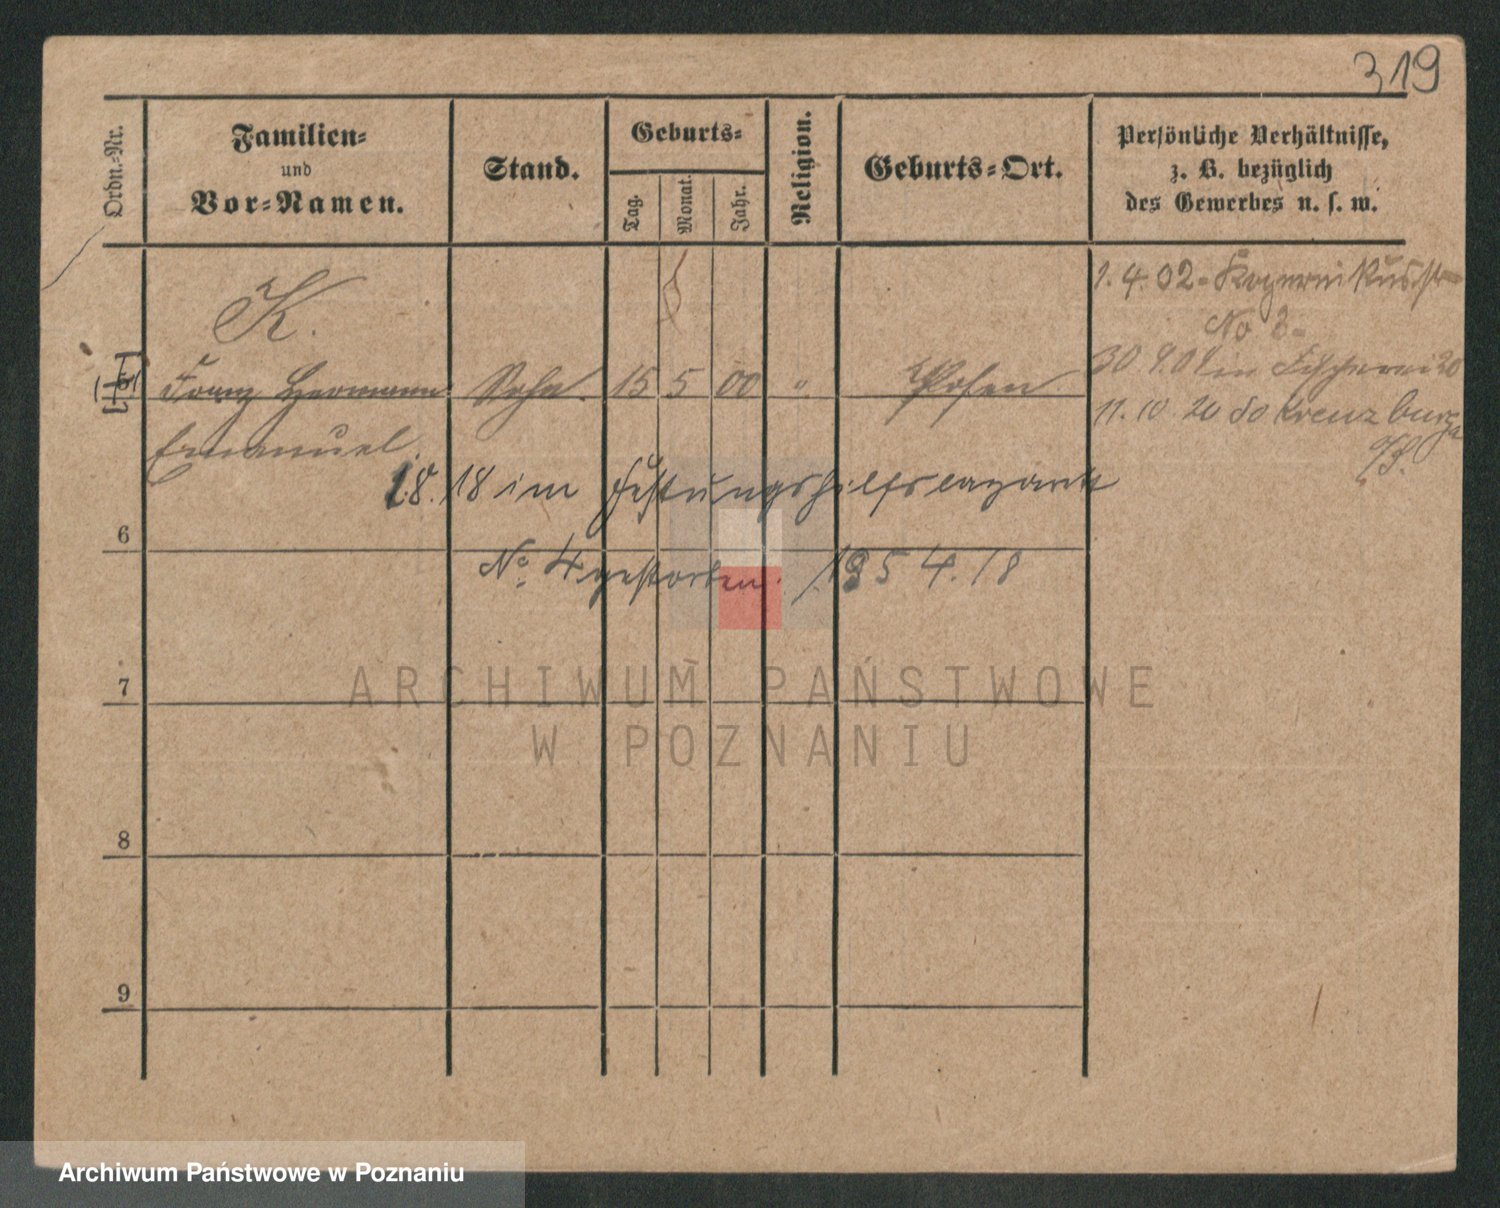 319
Ordn.-Nr.
Familien-
und
Vor-Namen.
Stand.
Geburts-
Tag.
Monat.
Jahr.
Religion.
Geburts-Ort.
Persönliche Verhältnisse,
z. B. bezüglich
des Gewerbes u. s. w.
K.
1. 4. 02 - Kopernikusstr
No 3 -
5 Franz Hermann Sohn. 15 5 00 " Posen
30 9.01 in Fischerei 20
Emanuel
11. 10. 20 Kreuzburg
O/S.
1.8.18 im Festungshilfslazarett
6
No 4 gestorben. 1954.18
7
8
9
ARCHIWUM PAŃSTWOWE
W POZNANIU
Archiwum Państwowe w Poznaniu